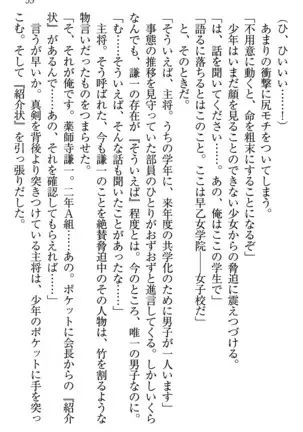 (ひ、ひいいい……っ)
あまりの衝撃に尻モチをついてしまう。
「不用意に動くと、命を粗末にすることになるぞ」
少年はいまだ顔を見ることのできない少女からの脅迫に震えつづける。
「は、話を聞いてください……。あの、俺はここの学生で」
「語るに落ちるとはこのこと。ここは早乙女学院――女子校だ」
と、そのときだ。
「そういえば、主将。うちの学年に、来年度の共学化のために男子が一人います」
事態の推移を見守っていた部員のひとりがおずおずと進言してくる。しかしいくら
なんでも、謙一の存在が『そういえば』程度とは。今のところ、唯一の男子なのに。
「む……そういえば、そんな話も聞いたことがあったな……」
主将。そう呼ばれた、今も謙一のことを絶賛脅迫中のその人物は、竹を割るような
物言いだったものをつまらせた。
「そ、それが俺です。薬師寺謙一。二年A組……あの。ポケットに会長からの『紹介
状』があるんで……あの、それを確認してもらえれば……」
言うが早いか。真剣を背後より突きつけている主将は、少年のポケットに手を突っ
こむ。そして『紹介状』を引っ張りだした。